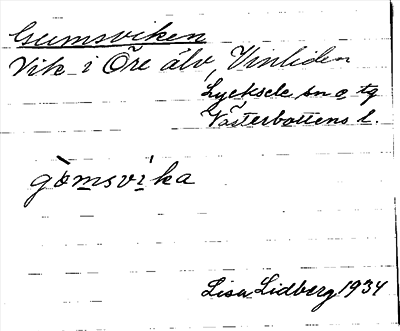 Gumsviken
Vik i Öre älv, Vinliden
Lycksele sn o. tg
Västerbottens l.
gòmsvìka
Lisa Lidberg 1934